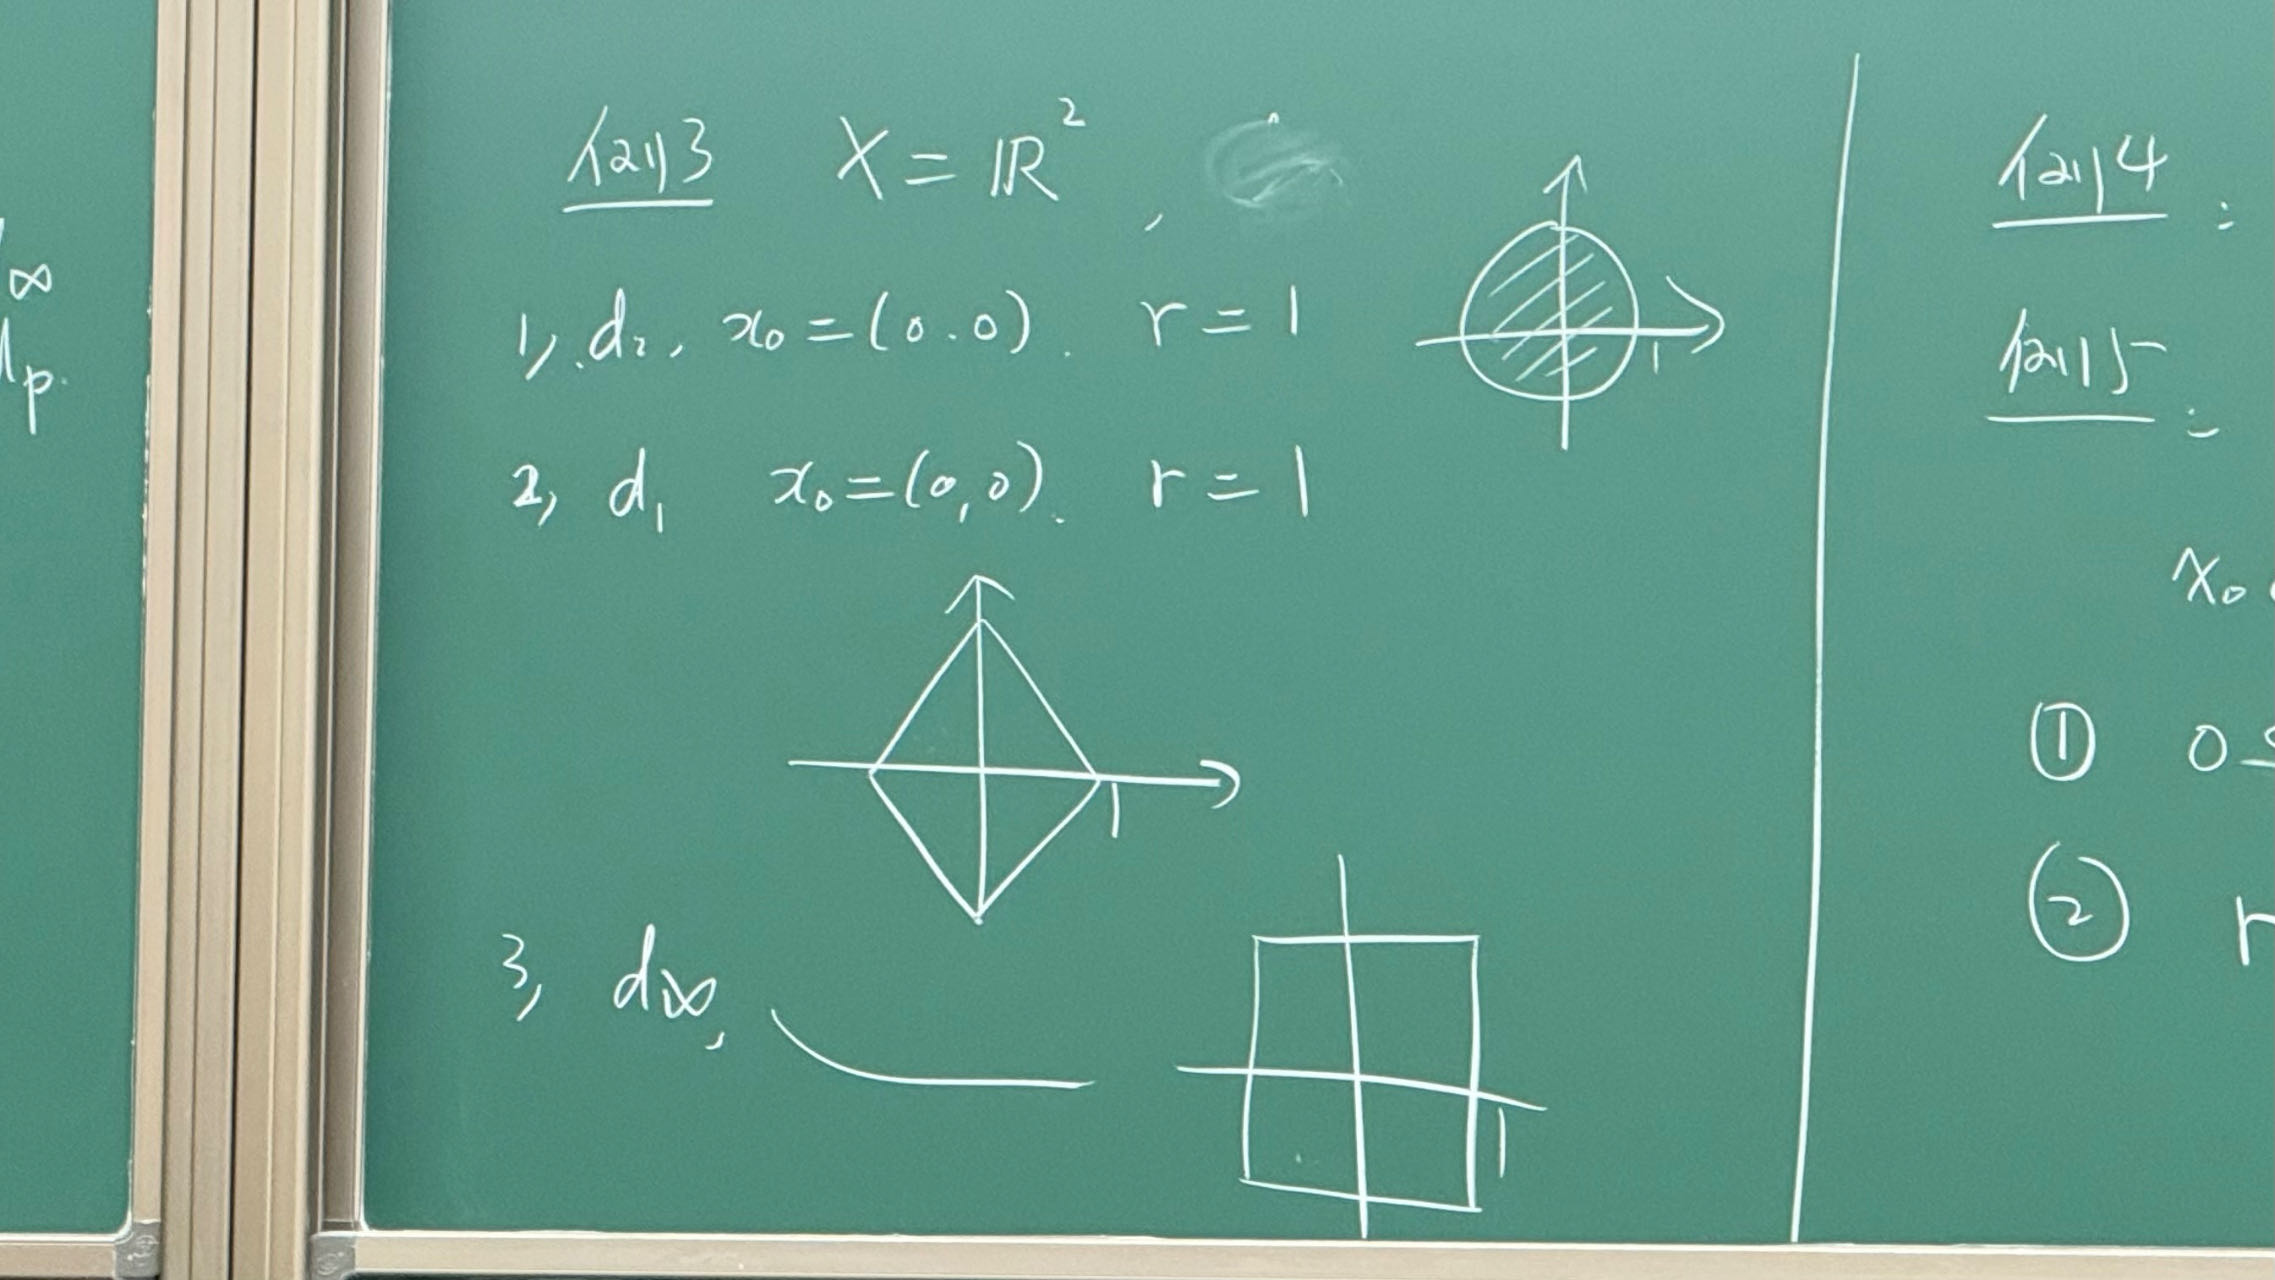 ∞
p.
例3 X = ℝ²,
1
1), d₂, x₀ = (0.0). r = 1
2, d₁ x₀ = (0,0). r = 1
1
3, d∞,
1
例4 :
例5 :
x₀
① 0
② r